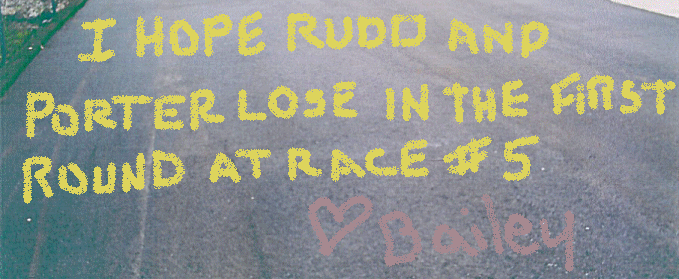 I HOPE RUDD AND
PORTER LOSE IN THE FIRST
ROUND AT RACE #5
♡ Bailey